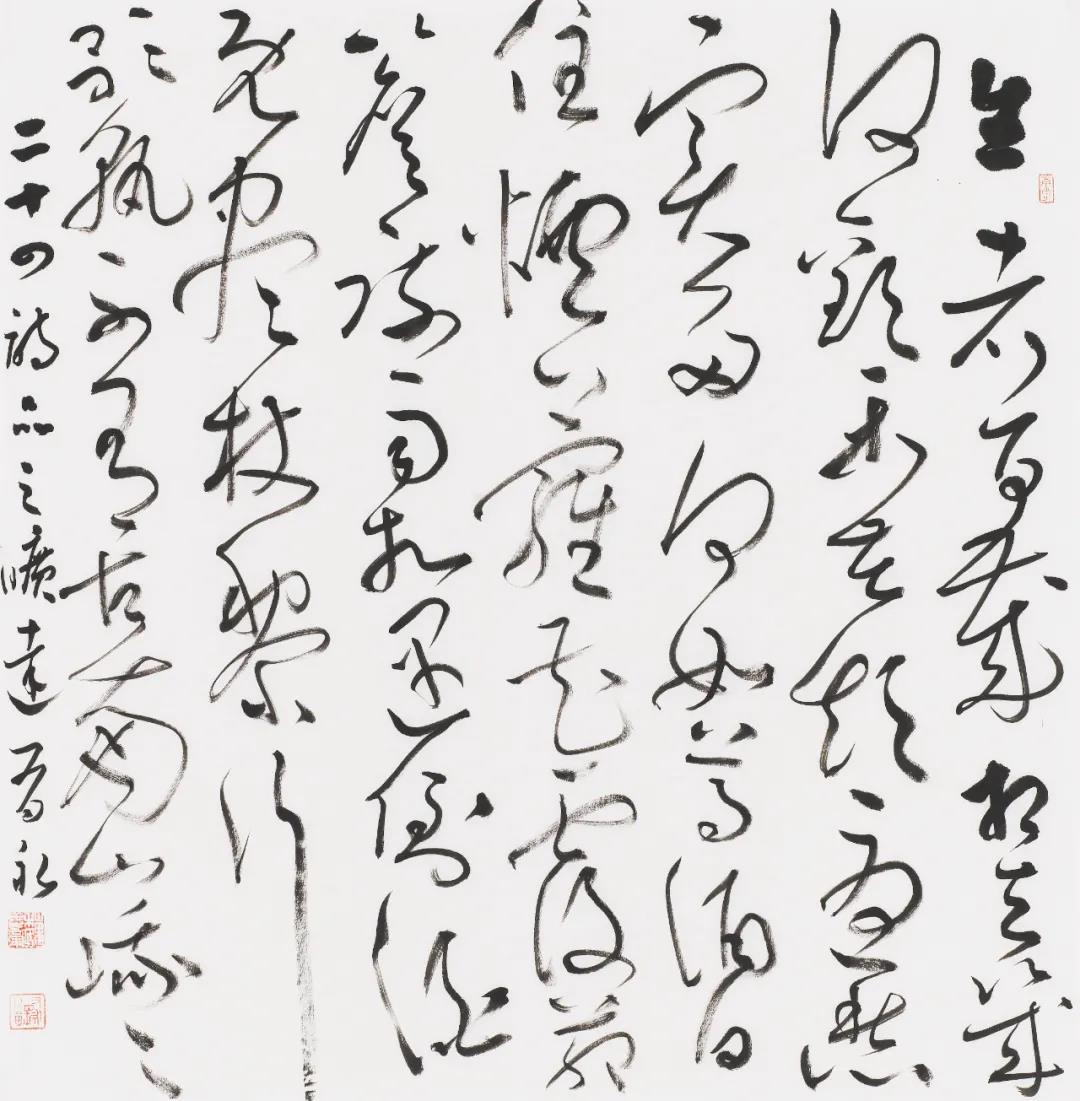 生者百歲相去幾
何歡樂苦短憂愁
實多何如尊酒日
往煙蘿花覆茆
簷疏雨相過倒酒
既盡杖黎行
歌孰不有古南山峨々
二十四詩品之曠達